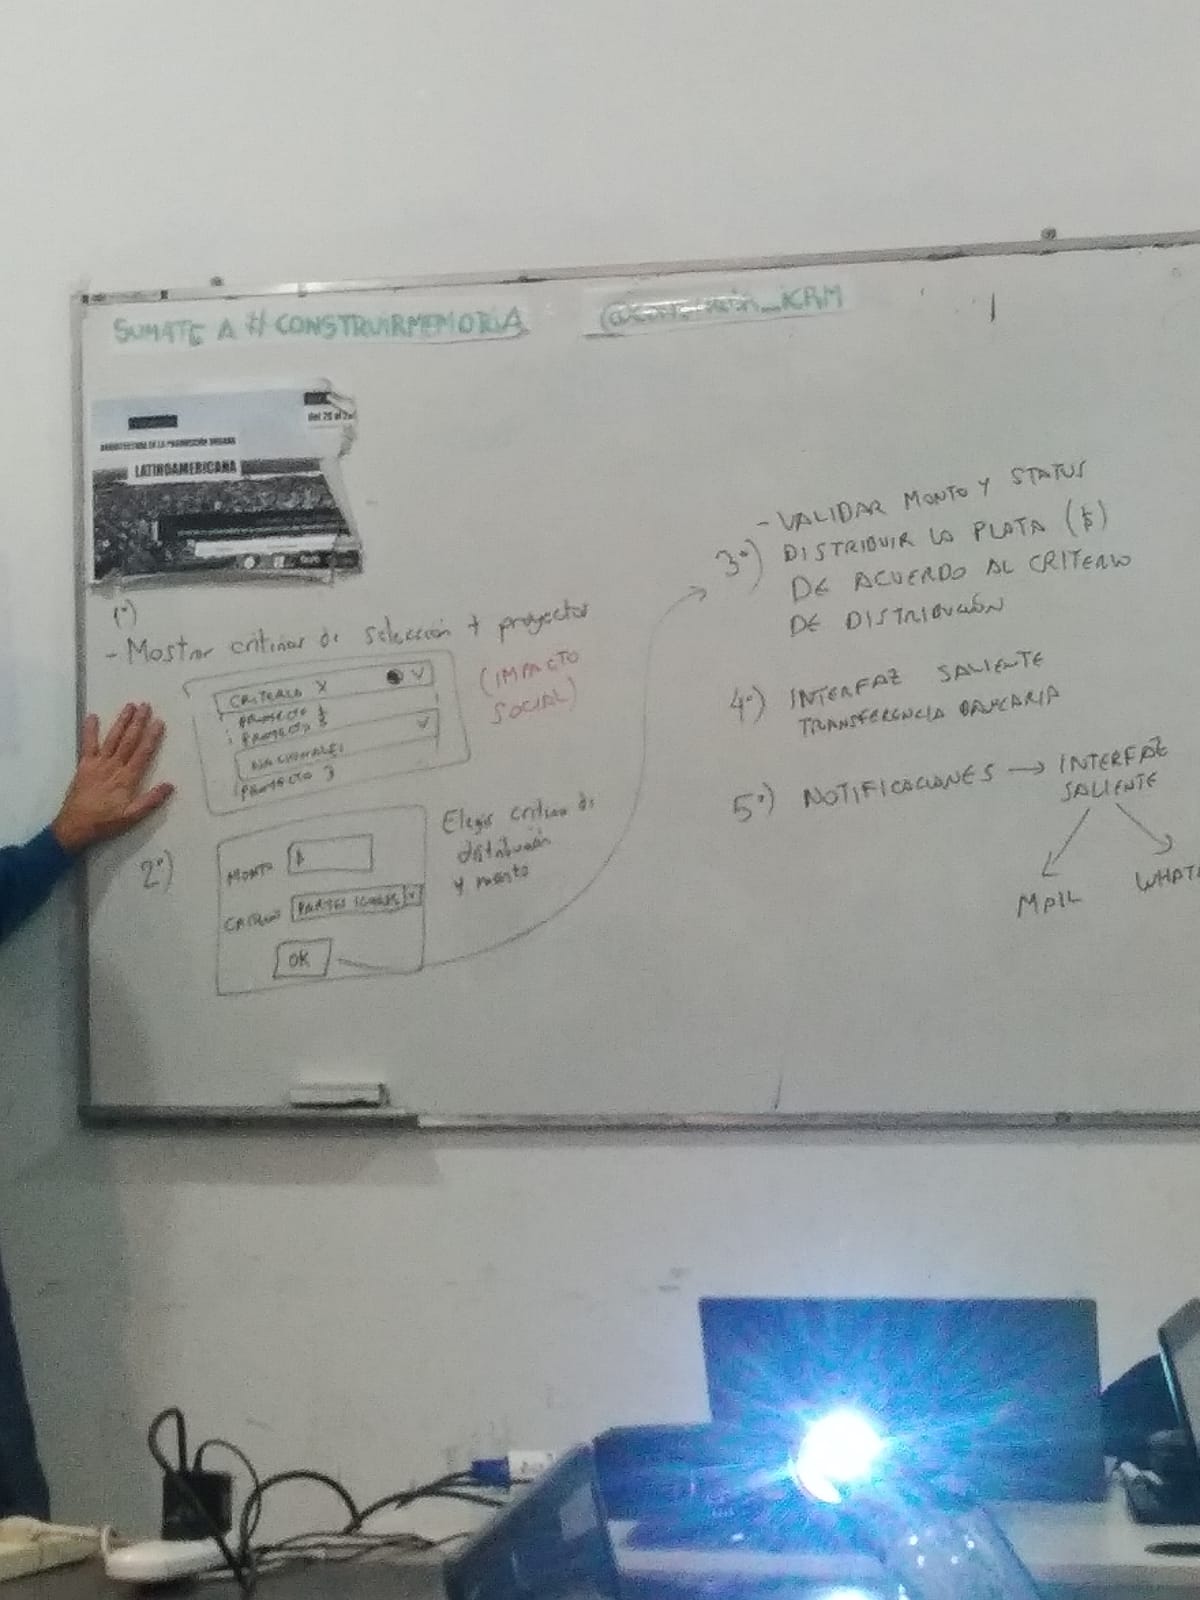 SUMATE A #CONSTRUIRMEMORIA
ARQUITECTURA DE LA PRODUCCIÓN URBANA
LATINOAMERICANA
1º)
- Mostrar criterios de selección + proyectos
(IMPACTO
SOCIAL)
CRITERIO X
PROYECTO 1
NACIONALES
PROYECTO 3
2º)
MONTO $
CRITERIO PARTES IGUALES
OK
Elegir criterio de
distribución
y monto
- VALIDAR MONTO Y STATUS
3º) DISTRIBUIR LA PLATA ($)
DE ACUERDO AL CRITERIO
DE DISTRIBUCIÓN
4º) INTERFAZ SALIENTE
TRANSFERENCIA BANCARIA
5º) NOTIFICACIONES → INTERFAZ
SALIENTE
MAIL
WHATS